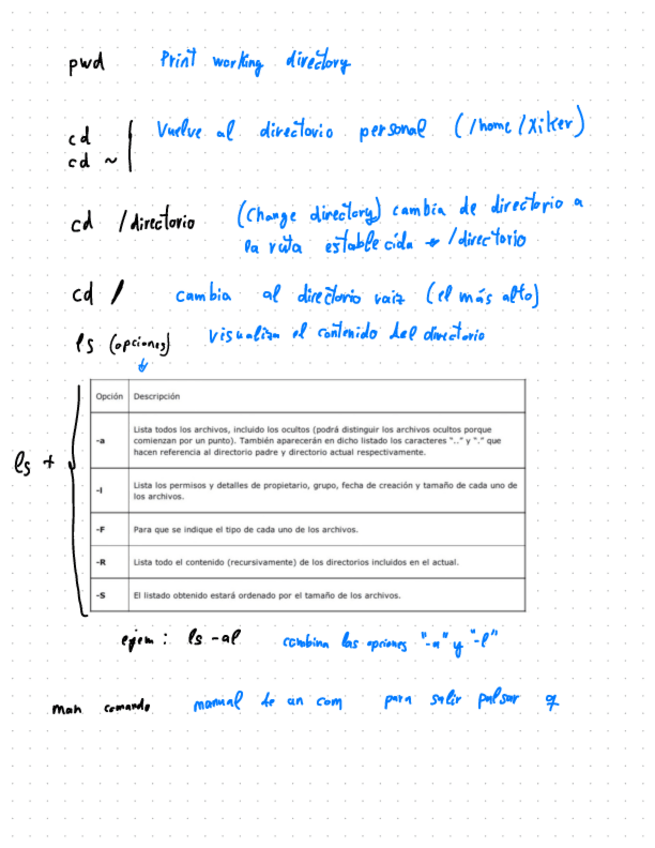 pwd Print working directory
cd
cd ~ Vuelve al directorio personal (/home/Xiker)
cd /directorio (Change directory) cambia de directorio a
la ruta establecida → /directorio
cd / cambia al directorio raiz (el más alto)
ls (opciones) visualiza el contenido del directorio
ls +
Opción Descripción
-a Lista todos los archivos, incluido los ocultos (podrá distinguir los archivos ocultos porque
comienzan por un punto). También aparecerán en dicho listado los caracteres ".." y "." que
hacen referencia al directorio padre y directorio actual respectivamente.
-l Lista los permisos y detalles de propietario, grupo, fecha de creación y tamaño de cada uno de
los archivos.
-F Para que se indique el tipo de cada uno de los archivos.
-R Lista todo el contenido (recursivamente) de los directorios incluidos en el actual.
-S El listado obtenido estará ordenado por el tamaño de los archivos.
ejem: ls -al combina las opciones "-a" y "-l"
man comando manual de un com para salir pulsar q